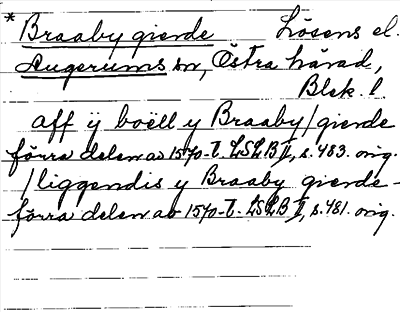 * Braaby gierde Lösens el.
Augerums sn, Östra härad,
Blek. l
aff ÿ boëll y Braaby/gierde
förra delen av 1570-t. LSLB II, s. 483. orig.
/liggendis y Braaby gierde -
förra delen av 1570-t. LSLB II, s. 481. orig.